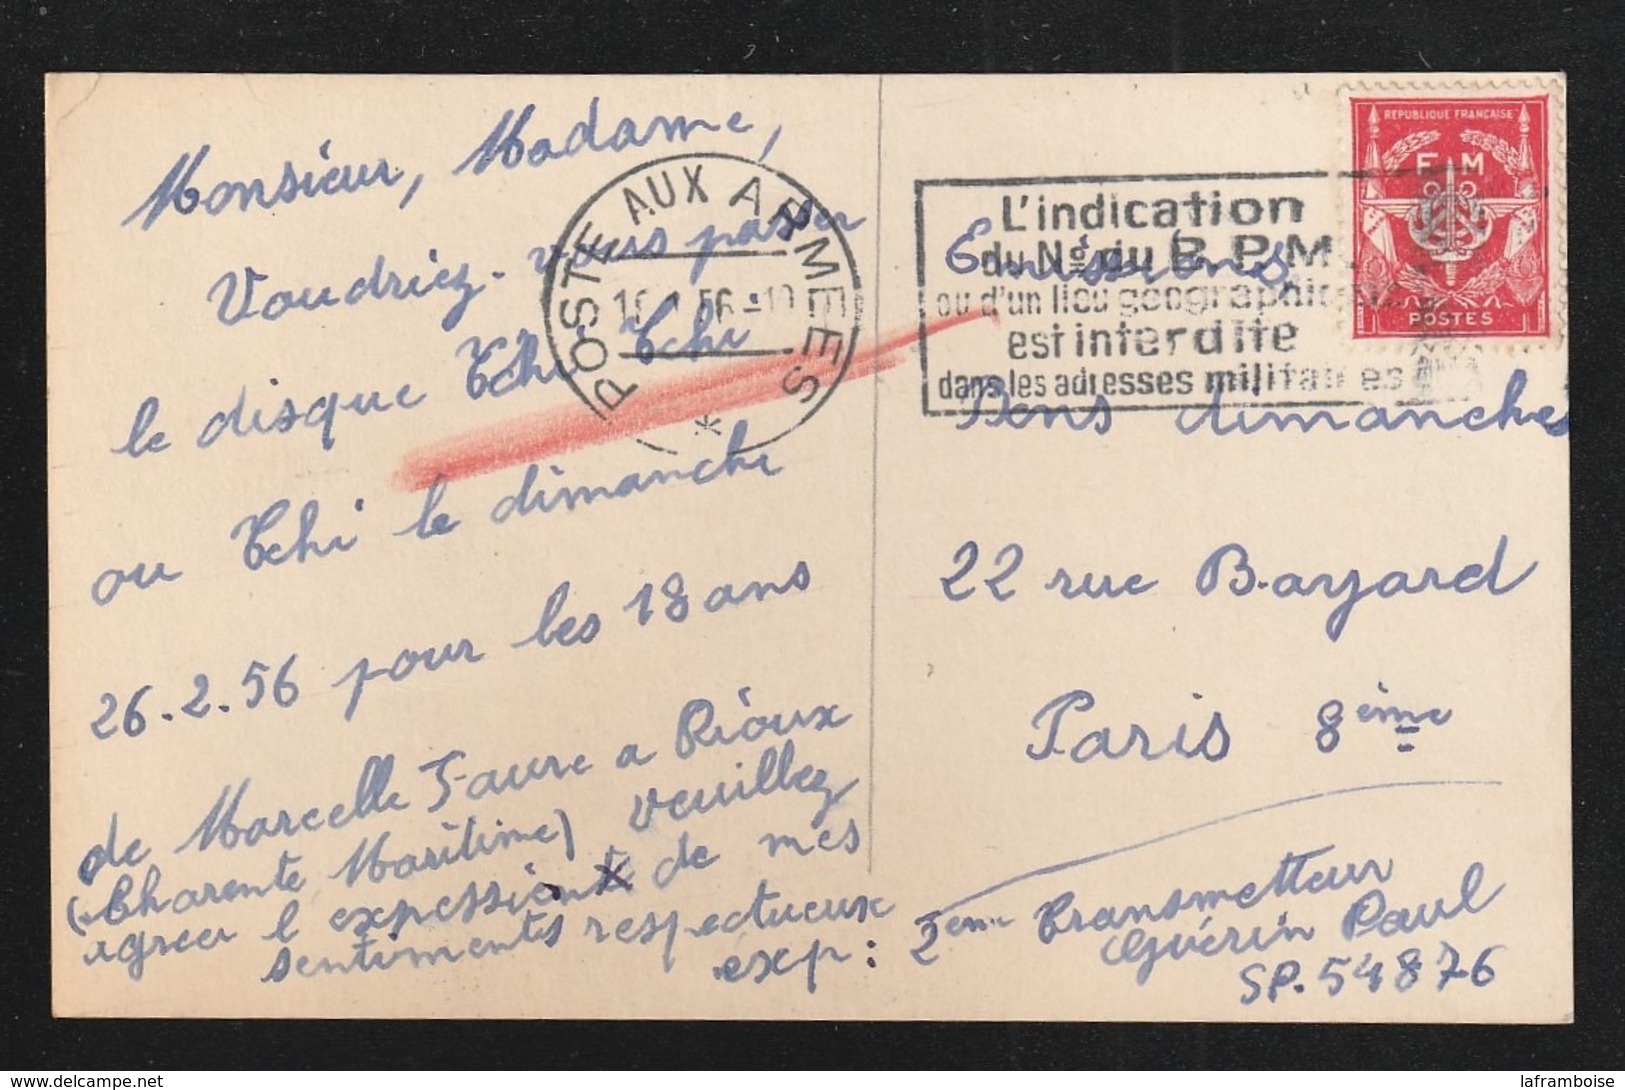 Monsieur, Madame,
Voudriez-vous passer
le disque Tchi Tchi
ou Tchi le dimanche
26.2.56 pour les 18 ans
de Marcelle Faure a Rioux
(Charente Maritime) veuillez
agreer l'expression de mes
sentiments respectueux
POSTE AUX ARMEES
56 - 10
*
L'indication
du Nº du B.P.M.
ou d'un lieu géographique
est interdite
dans les adresses militaires
REPUBLIQUE FRANÇAISE
F M
POSTES
Emissions
Bons dimanches
22 rue Bayard
Paris 8ème
exp: 2ème Transmetteur
Guérin Paul
SP. 54876
delcampe.net
laframboise